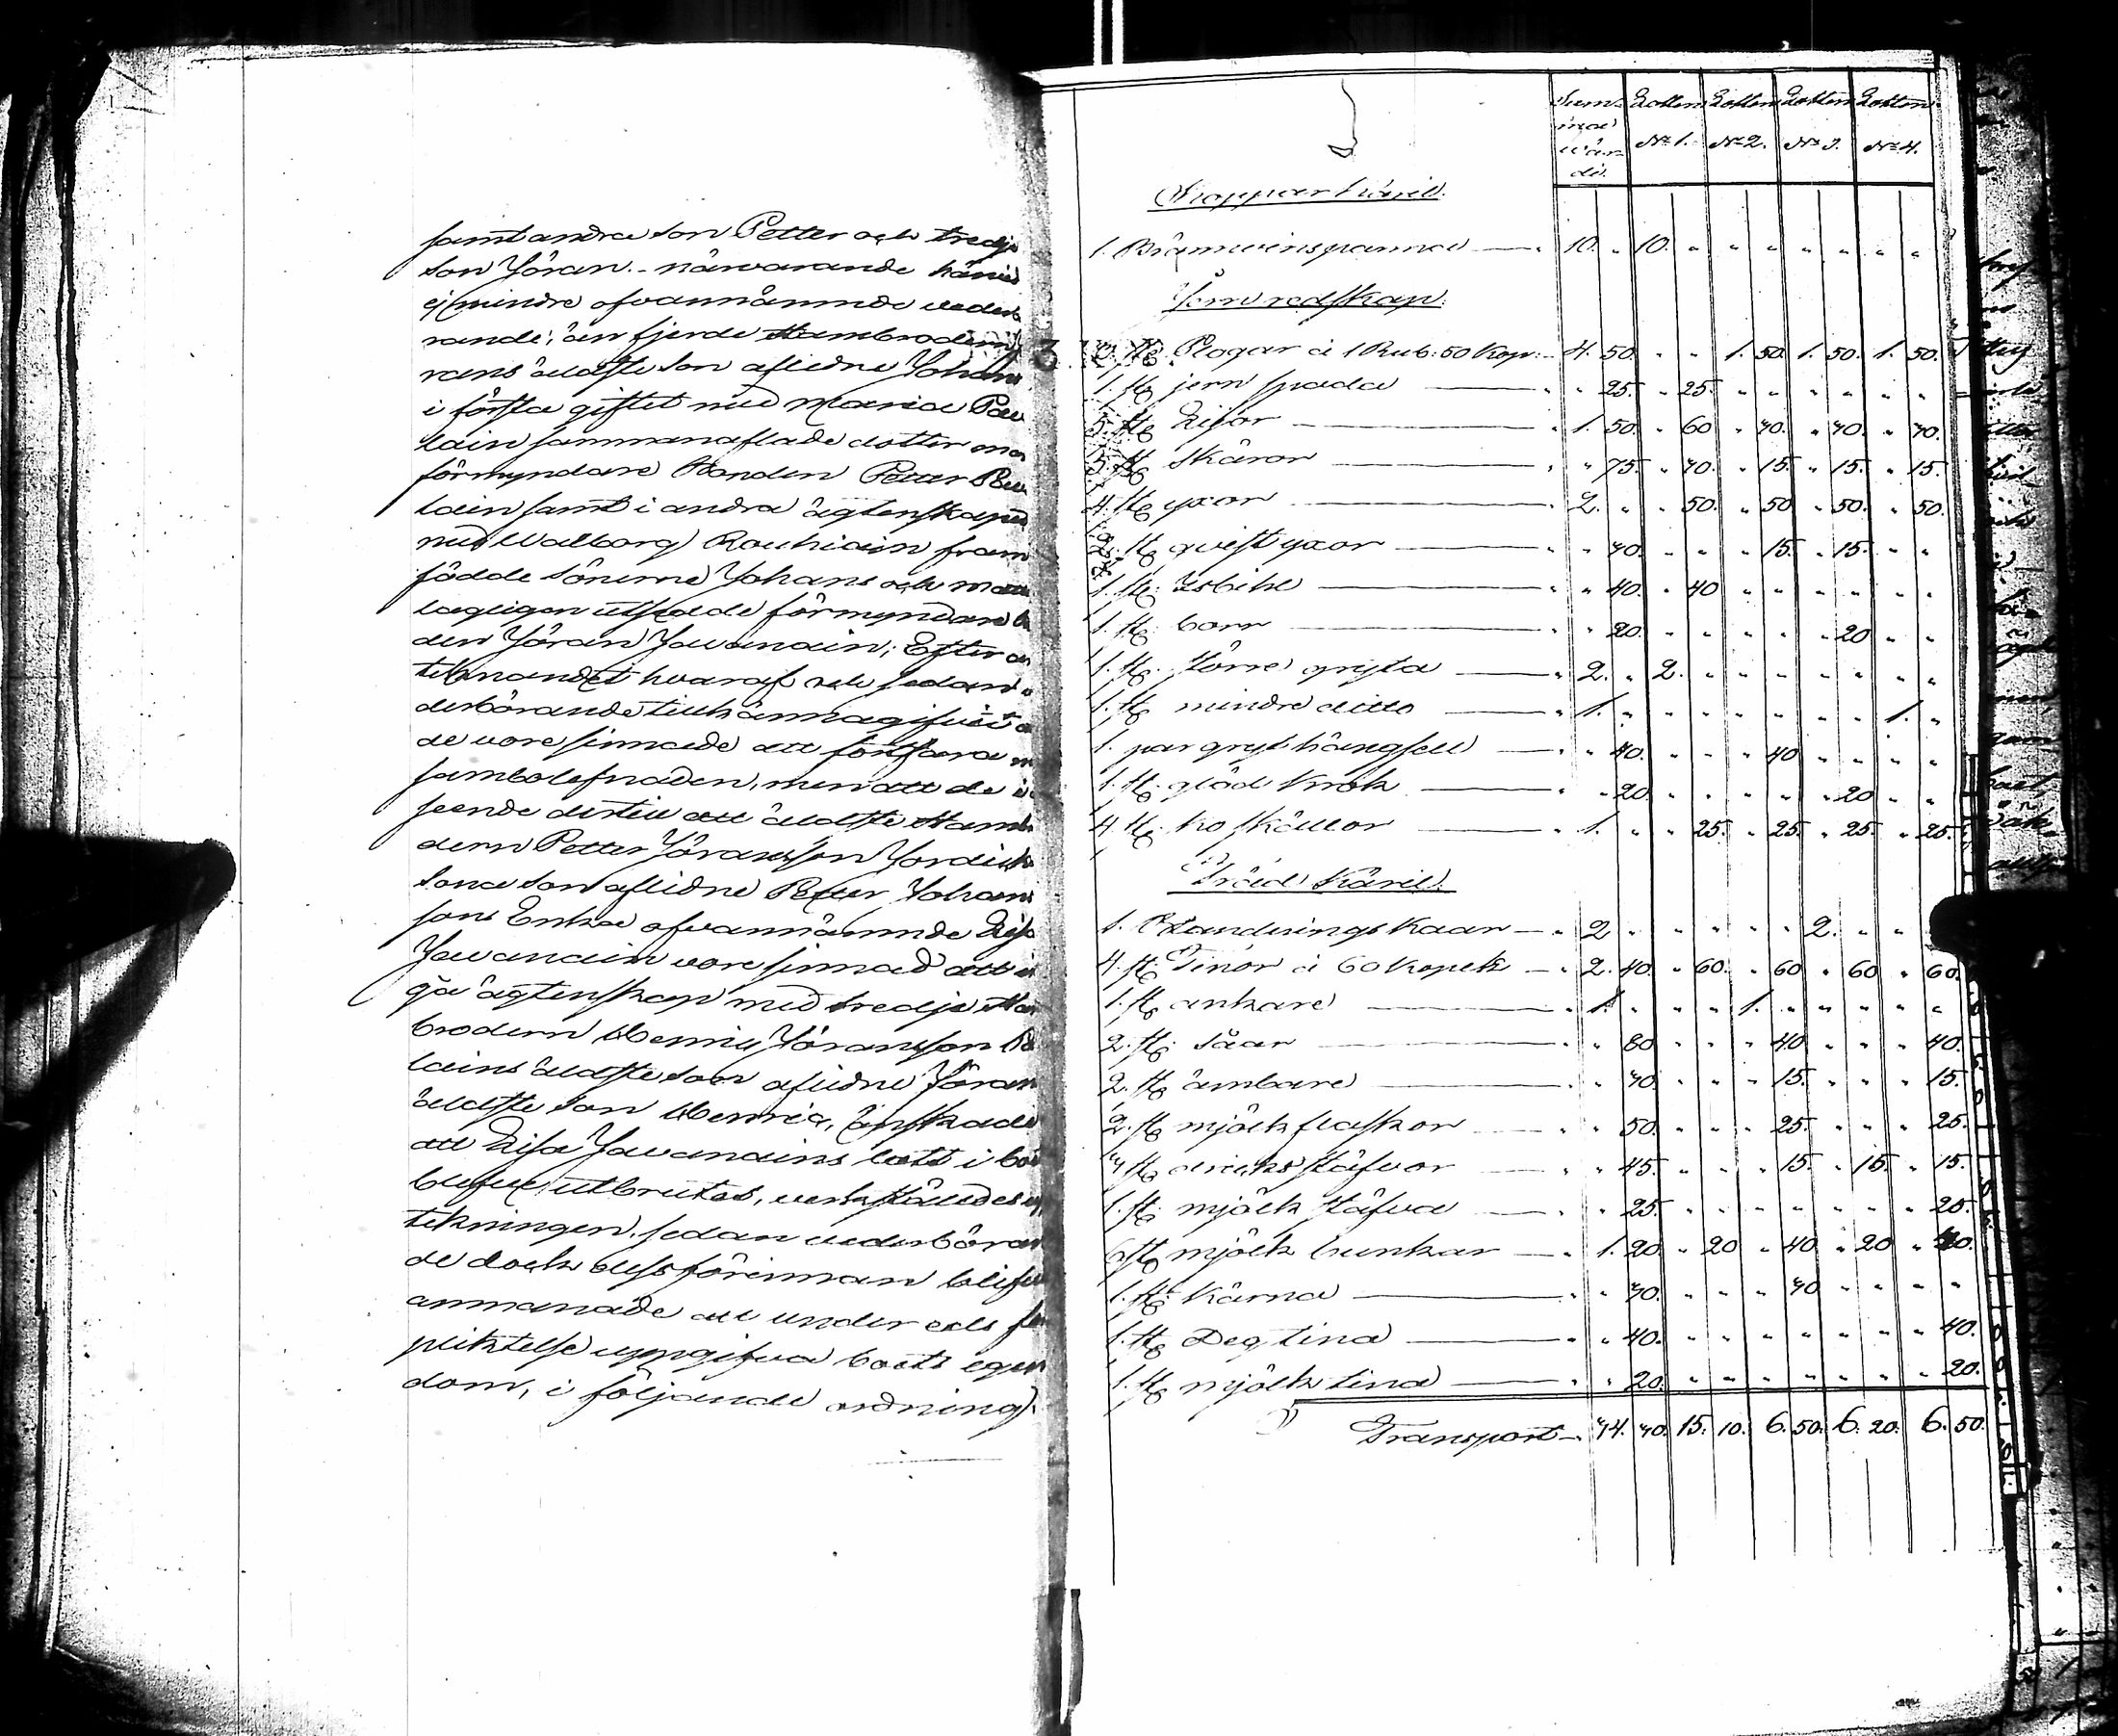 samt andra son Petter och tredje
son Jöran. närvarande härvid
ej mindre ofvannämnde veder
rande, än fjerde Stambrodern
rans äldste son aflidne Johans
i första giftet med Maria Pau
lain sammanaflade dotter
förmyndare Bonden Petter Pau
lain samt i andra ägtenskapet
med Walborg Rouhiain fram
födde sönerne Johans och
lagligen utsedde förmyndare
den Jöran Javanain; Efter
tecknandet hvaraf och sedan
derbörande tillkännagifvit
de vore sinnade att fortfara
sambolefnaden, men att de i
seende dertill att äldste Stambro
dern Petter Jöransson
sona son aflidne Petter Johans
sons Enka ofvannämnde Lisa
Javanain vore sinnad att in
gå ägtenskap med tredje Stam
brodern Henric Jöransson Pau
lains äldste son aflidne Jöran
äldste son Henric, önskade
att Lisa Javanains lott i bo
blefve utbrutas, verkställdes upp
tekningen, sedan vederböran
de dock dessförinnan blifvit
anmanade att under eds för
pliktelse uppgifva boets egen
dom, i följande ordning.
Summa värde. Lotten N:o 1. Lotten N:o 2. Lotten N:o 3. Lotten N:o 4.
Koppar Käril.
1. Brännvinspanna — 10. „ 10. „ „ „ „ „ „ „
Jern redskap.
3. st. Plogar à 1 Rub: 50 Kop: 4. 50. „ „ 1. 50. 1. 50. 1. 50.
1. st. jern spada — „ 25. „ 25. „ „ „ „ „ „
5. st. Lijor — 1. 50. „ 60 „ 30. „ 30. „ 30.
5. st. Skäror — „ 75. „ 30. „ 15. „ 15. „ 15.
4. st. yxor — 2. „ „ 50. „ 50 „ 50. „ 50.
2. st. qvistyxor — „ 30. „ „ „ 15. „ 15. „ „
1. st. Isbihl — „ 40. „ 40 „ „ „ „ „ „
1. st. borr — „ 20. „ „ „ „ „ 20 „ „
1. st. större gryta — 2. „ 2. „ „ „ „ „ „ „
1. st. mindre ditto — 1. „ „ „ „ „ „ „ 1. „
1. par gryt hängsell — „ 40. „ „ „ 40 „ „ „ „
1. st. glöd krok — „ 20. „ „ „ „ „ 20 „ „
4. st. ko skällor — 1. „ „ 25. „ 25. „ 25. „ 25.
Träd Käril.
1. Kaar — 2 „ „ „ „ „ 2. „ „
4. st. Tinor à 60 kopek — 2. 40. „ 60. „ 60 „ 60 „ 60.
1. st. ankare — 1. „ „ „ 1. „ „ „ „ „
2. st. såar — „ 80 „ „ „ 40 „ „ „ 40.
2. st. ämbare — „ 30. „ „ „ 15. „ „ „ 15.
2. st. mjölkflaskor — „ 50. „ „ „ 25. „ „ „ 25.
3 st. stäfvor — „ 45. „ „ „ 15. „ 15. „ 15.
1. st. mjölk stäfva — „ 25. „ „ „ „ „ „ „ 25.
6 st. mjölk bunkar — 1. 20. „ 20 „ 40 „ 20 „ 40.
1. st. Kärna — „ 30. „ „ „ 30 „ „ „ „
1. st. Deg tina — „ 40. „ „ „ „ „ „ „ 40.
1. st. mjölk tina — „ 20. „ „ „ „ „ „ „ 20.
Transport — 34. 30. 15. 10. 6. 50. 6. 20. 6. 50.